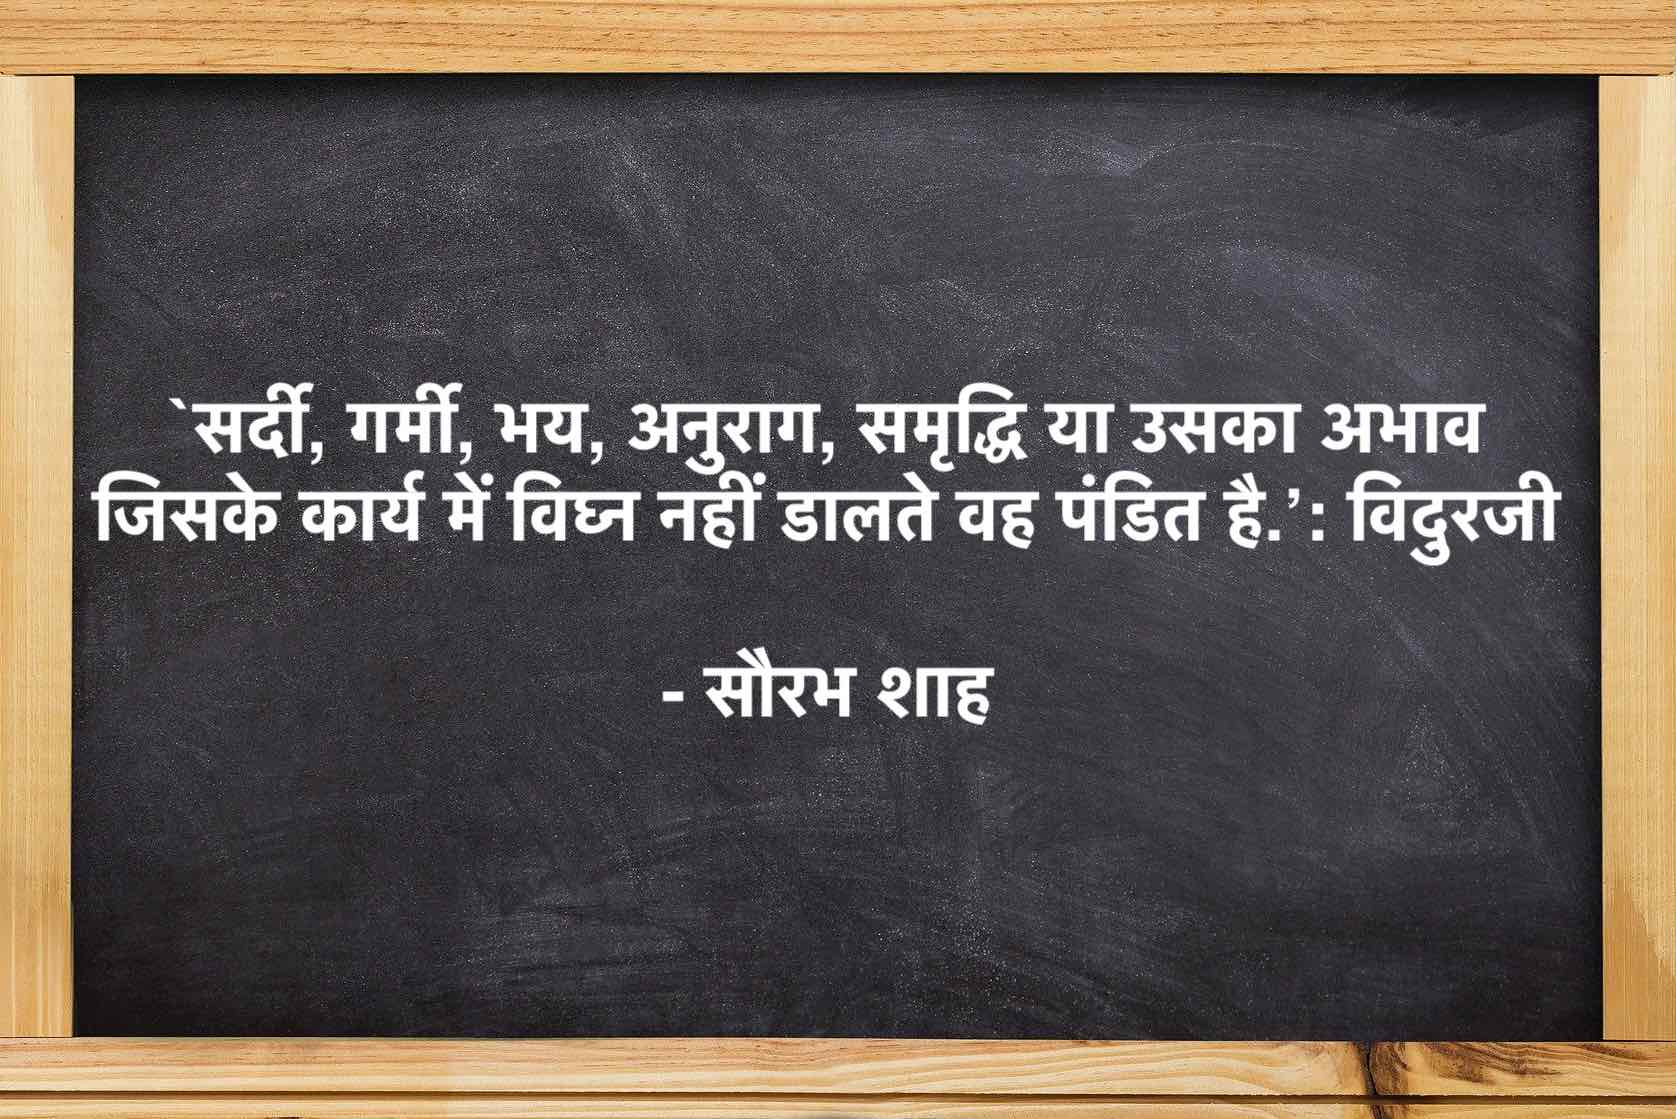 `सर्दी, गर्मी, भय, अनुराग, समृद्धि या उसका अभाव
जिसके कार्य में विघ्न नहीं डालते वह पंडित है.’: विदुरजी
- सौरभ शाह